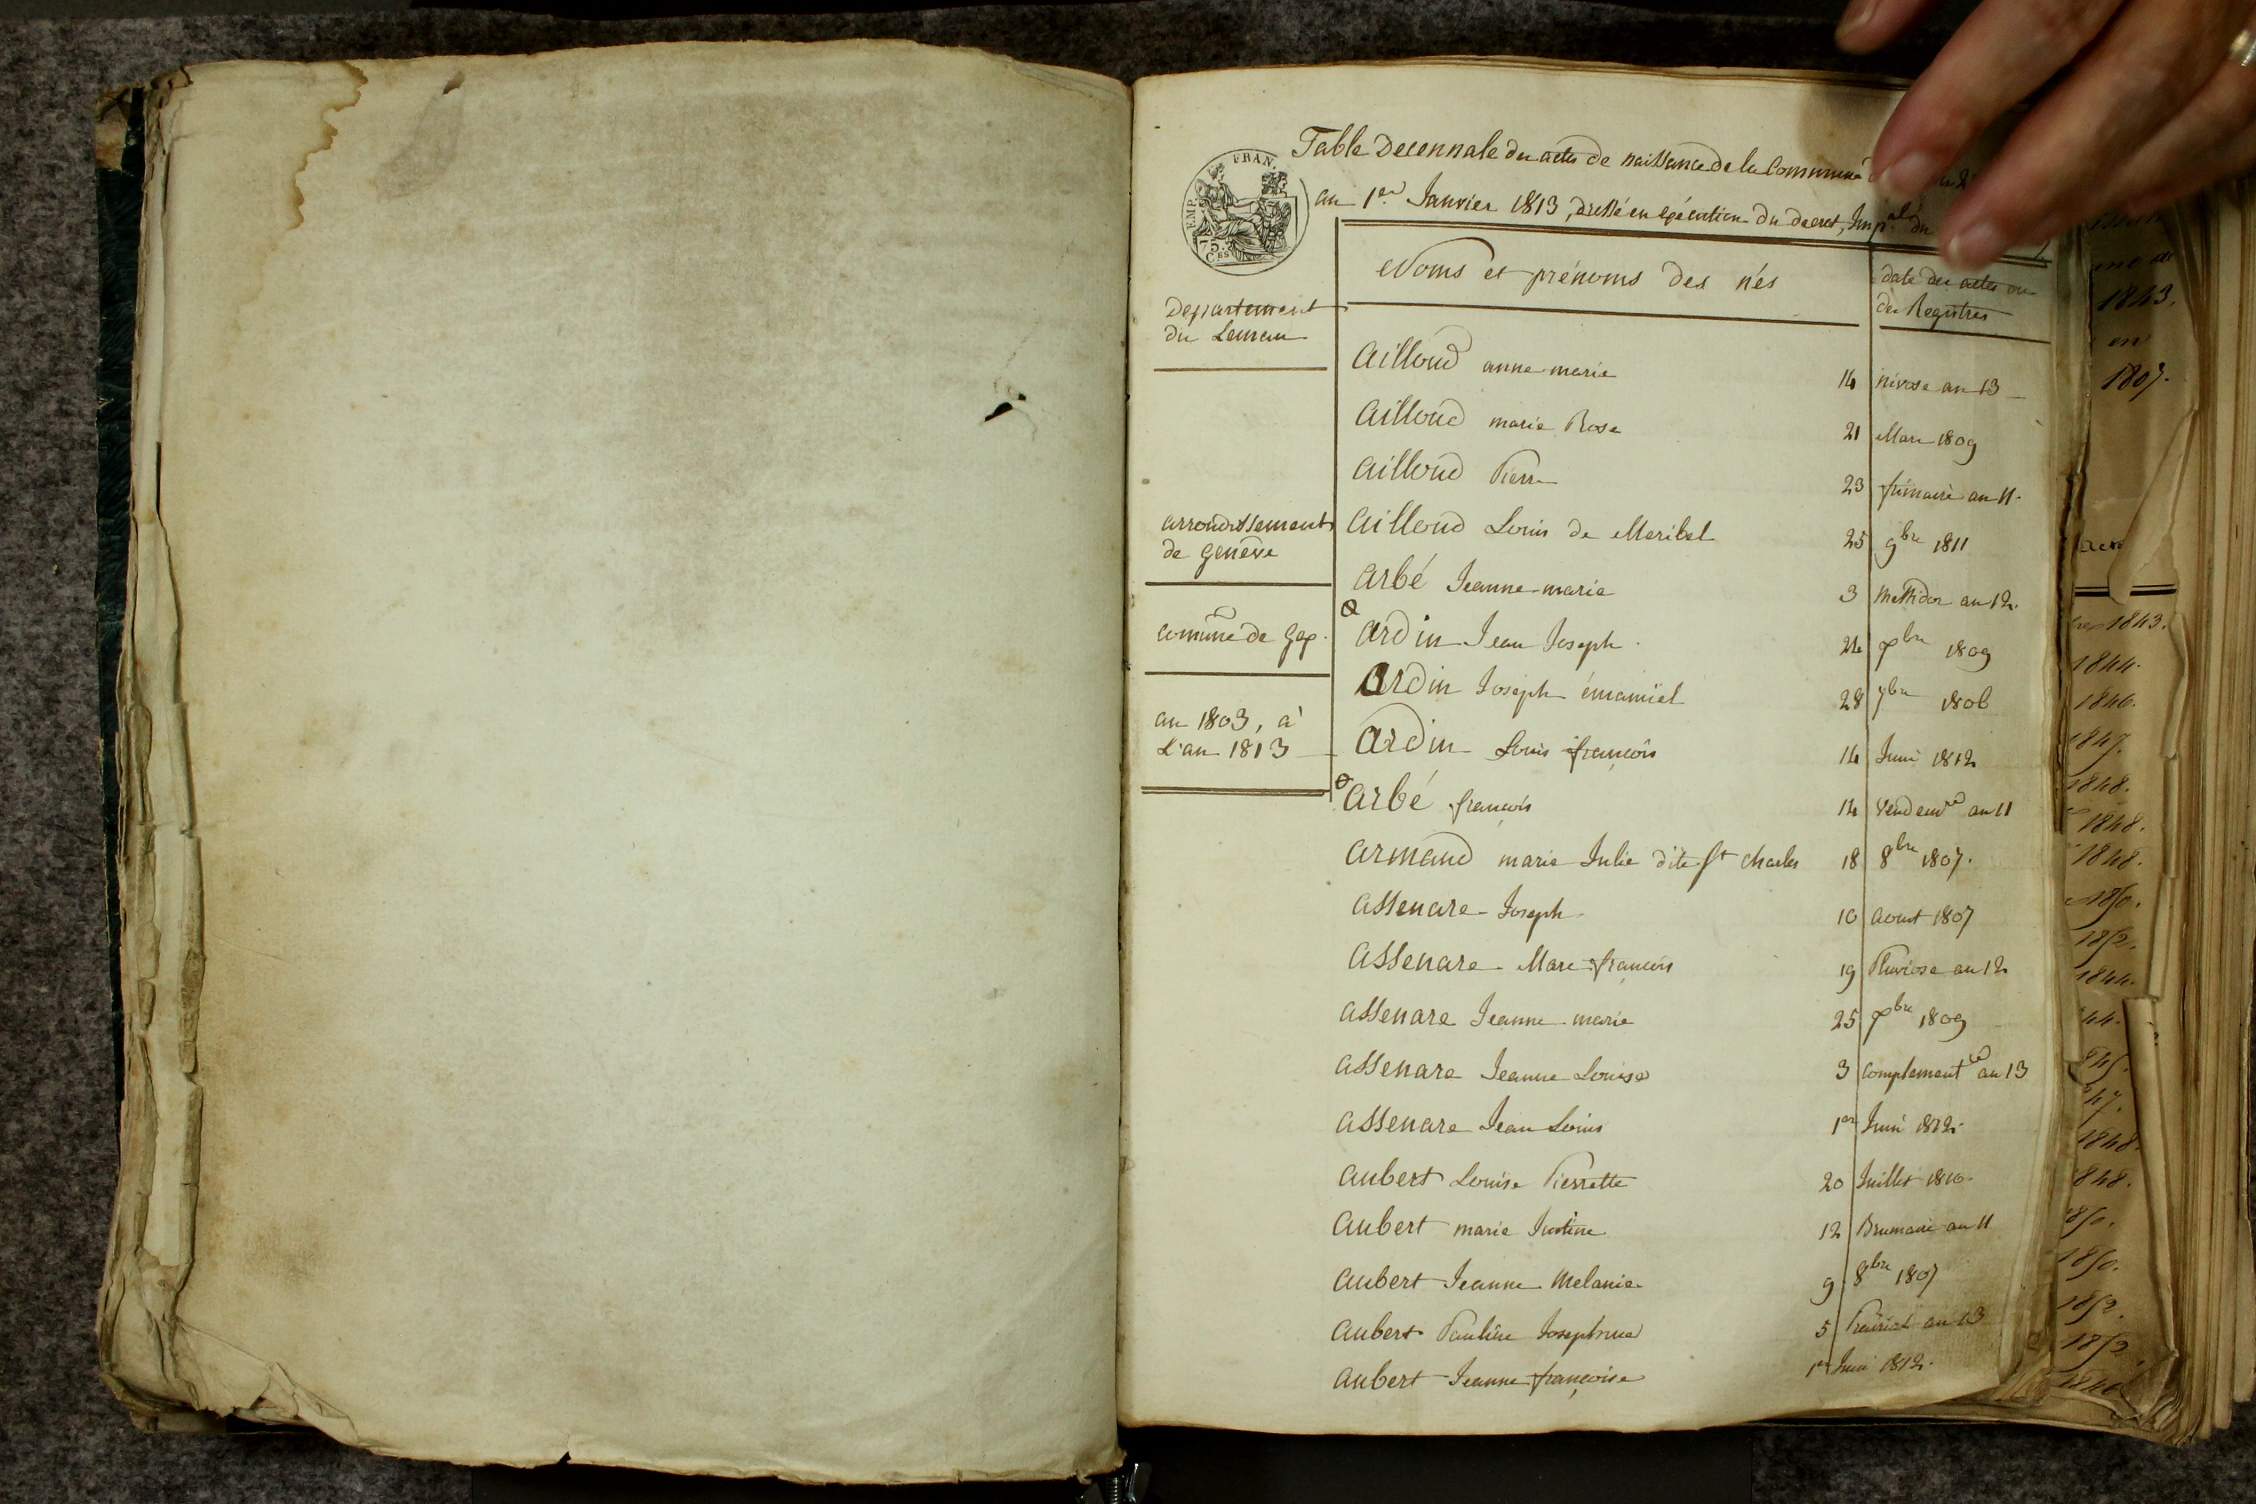 Table Decennale des actes de naissance de la Commune
au 1er Janvier 1813, dressé en exécution du decret, Impal du
EMP. FRAN.
75.
CES
Departement
du Leman
arrondissement
de genève
comune de Gex.
an 1803, à
L'an 1813
Noms et prénoms des nés
date des actes ou
des Registres
Ailloud anne-marie 14 nivose an 13
Ailloud marie Rose 21 Mars 1809
Ailloud Pierre 23 frimaire an 11.
Ailloud Louis de Meribel 25 9bre 1811
Arbé Jeanne-marie 3 Messidor an 12.
Ardin Jean Joseph. 24 xbre 1809
Ardin Joseph émanuel 28 7bre 1806
Ardin Louis françois 14 Juin 1812
Arbé françois 14 vendemre an 11
Armand marie Julie dite St Charles 18 8bre 1807.
Assenare Joseph 10 Aoust 1807
Assenare Marc-françois 19 Pluviose an 12
Assenare Jeanne-marie 25 xbre 1809
Assenare Jeanne Louise 3 complementre an 13
Assenare Jean Louis 1er Juin 1812.
Aubert Louise Pierrette 20 Juillet 1810.
Aubert marie Justine 12 Brumaire an 11
Aubert Jeanne Melanie 9 8bre 1807
Aubert Pauline Josephine 5 Prairial an 13
Aubert Jeanne françoise 1er Juin 1812.
1843.
en
1807.
1843.
1844.
1846.
1847.
1848.
1848.
1848.
1850.
1852.
1844.
1848.
1848.
1850.
1852.